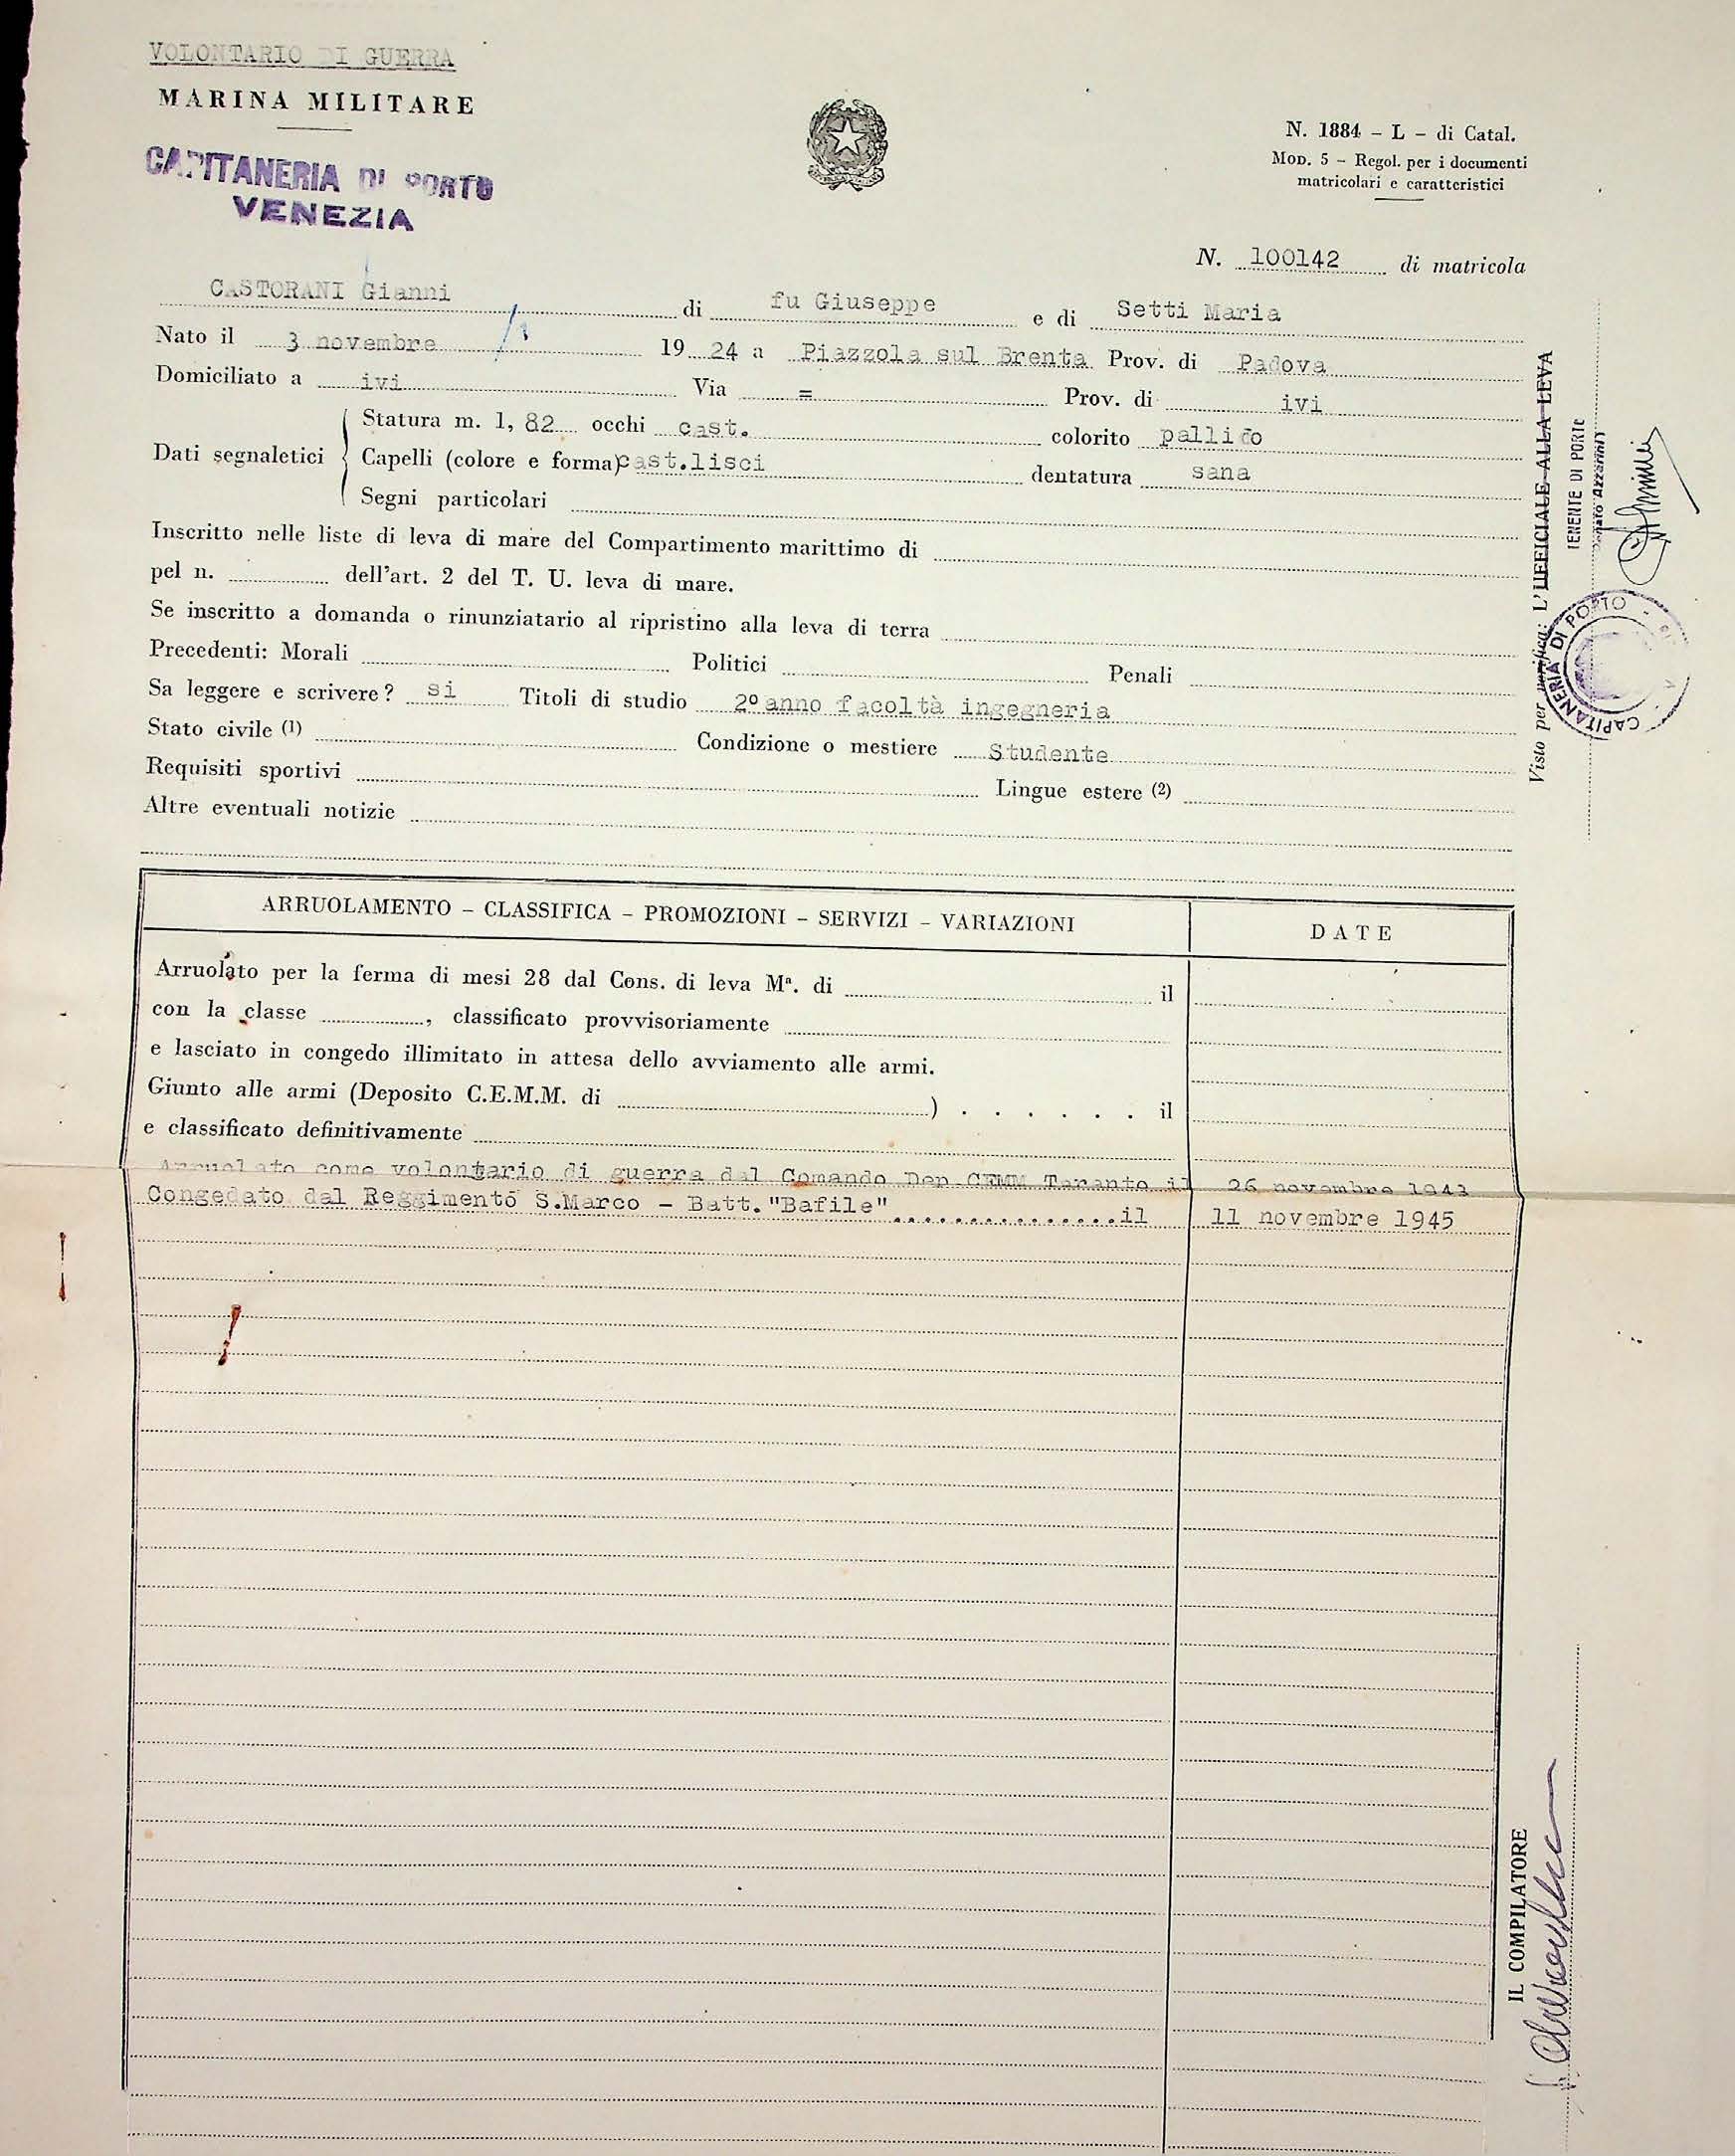 VOLONTARIO DI GUERRA
MARINA MILITARE
CAPITANERIA DI PORTO
VENEZIA
N. 1884 – L – di Catal.
Mod. 5 – Regol. per i documenti
matricolari e caratteristici
N. 100142 di matricola
CASTORANI Gianni di fu Giuseppe e di Setti Maria
Nato il 3 novembre 19 24 a Piazzola sul Brenta Prov. di Padova
Domiciliato a ivi Via = Prov. di ivi
Dati segnaletici
Statura m. 1, 82 occhi cast. colorito pallido
Capelli (colore e forma) cast.lisci dentatura sana
Segni particolari
Inscritto nelle liste di leva di mare del Compartimento marittimo di
pel n. dell'art. 2 del T. U. leva di mare.
Se inscritto a domanda o rinunziatario al ripristino alla leva di terra
Precedenti: Morali Politici Penali
Sa leggere e scrivere? si Titoli di studio 2° anno facoltà ingegneria
Stato civile (1) Condizione o mestiere Studente
Requisiti sportivi Lingue estere (2)
Altre eventuali notizie
Visto per verifica: L'UFFICIALE ALLA LEVA
TENENTE DI PORTO
Azzarini
CAPITANERIA DI PORTO
ARRUOLAMENTO – CLASSIFICA – PROMOZIONI – SERVIZI – VARIAZIONI DATE
Arruolato per la ferma di mesi 28 dal Cons. di leva Mª. di il
con la classe , classificato provvisoriamente
e lasciato in congedo illimitato in attesa dello avviamento alle armi.
Giunto alle armi (Deposito C.E.M.M. di ) . . . . . . il
e classificato definitivamente
Arruolato come volontario di guerra dal Comando Dep.CEMM Taranto il 26 novembre 1943
Congedato dal Reggimento S.Marco – Batt."Bafile"...............il 11 novembre 1945
IL COMPILATORE